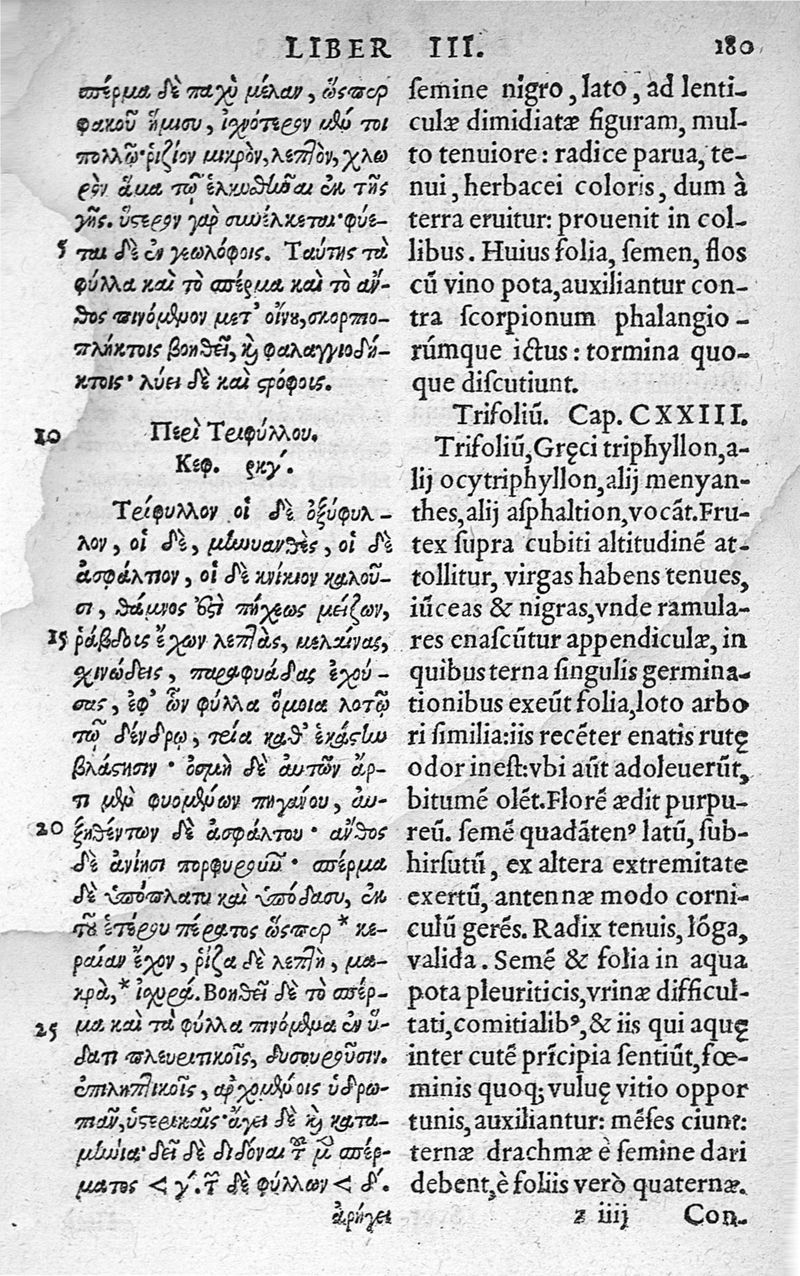 LIBER III. 180
σπέρμα δὲ παχὺ μέλαν, ὥσπερ
φακοῦ ἥμισυ, ἰχνότερον μέν τοι
πολλῷ· ῥιζίον μικρὸν, λεπτὸν, χλω
ρὸν ἅμα τῷ ἑλκυσθῆναι ἐκ τῆς
γῆς. ὕστερον γὰρ συνέλκεται· φύε-
5 ται δὲ ἐν γεωλόφοις. Ταύτης τὰ
φύλλα καὶ τὸ σπέρμα καὶ τὸ ἄν-
θος πινόμενον μετ' οἴνου, σκορπιο-
πλήκτοις βοηθεῖ, καὶ φαλαγγιοδή-
κτοις· λύει δὲ καὶ στρόφοις.
10 Περὶ Τριφύλλου.
Κεφ. ρκγ΄.
Τρίφυλλον οἱ δὲ ὀξύφυλ-
λον, οἱ δὲ, μινυανθὲς, οἱ δὲ
ἀσφάλτιον, οἱ δὲ κνίκιον καλοῦ-
σι, θάμνος ἐστὶ πήχεως μείζων,
15 ῥάβδοις ἔχων λεπτὰς, μελαίνας,
σχινώδεις, παραφυάδας ἐχού-
σας, ἐφ' ὧν φύλλα ὅμοια λοτῷ
τῷ δένδρῳ, τρία καθ' ἑκάστην
βλάστησιν· ὀσμὴ δὲ αὐτῶν ἄρ-
τι μὲν φυομένων πηγάνου, αὐ-
20 ξηθέντων δὲ ἀσφάλτου· ἄνθος
δὲ ἀνίησι πορφυροῦν· σπέρμα
δὲ ὑπόπλατυ καὶ ὑπόδασυ, ἐκ
τοῦ ἑτέρου πέρατος ὥσπερ * κε-
ραίαν ἔχον, ῥίζα δὲ λεπτὴ, μα-
κρὰ, * ἰσχυρά. Βοηθεῖ δὲ τὸ σπέρ-
25 μα καὶ τὰ φύλλα πινόμενα ἐν ὕ-
δατι πλευριτικοῖς, δυσουροῦσιν.
ἐπιληπτικοῖς, ἀρχομένοις ὑδρω-
πιᾶν, ὑστερικαῖς· ἄγει δὲ καὶ κατα-
μήνια· δεῖ δὲ διδόναι τοῦ μὲν σπέρ-
ματος < γ΄. τῶν δὲ φύλλων < δ΄.
ἀρήγει
semine nigro, lato, ad lenti-
culæ dimidiatæ figuram, mul-
to tenuiore: radice parua, te-
nui, herbacei coloris, dum à
terra eruitur: prouenit in col-
libus. Huius folia, semen, flos
cū vino pota, auxiliantur con-
tra scorpionum phalangio-
rúmque ictus: tormina quo-
que discutiunt.
Trifoliū. Cap. CXXIII.
Trifoliū, Gręci triphyllon, a-
lij ocytriphyllon, alij menyan-
thes, alij asphaltion, vocāt. Fru-
tex supra cubiti altitudinē at-
tollitur, virgas habens tenues,
iūceas & nigras, vnde ramula-
res enascūtur appendiculæ, in
quibus terna singulis germina-
tionibus exeūt folia, loto arbo
ri similia: iis recēter enatis rutę
odor inest: vbi aūt adoleuerūt,
bitumē olēt. Florē ædit purpu-
reū. semē quadāten⁹ latū, sub-
hirsutū, ex altera extremitate
exertū, antennæ modo corni-
culū gerēs. Radix tenuis, lōga,
valida. Semē & folia in aqua
pota pleuriticis, vrinæ difficul-
tati, comitialib⁹, & iis qui aquę
inter cutē prīcipia sentiūt, fœ-
minis quoq; vuluę vitio oppor
tunis, auxiliantur: mēses ciunt:
ternæ drachmæ è semine dari
debent, è foliis verò quaternæ.
z iiij Con-